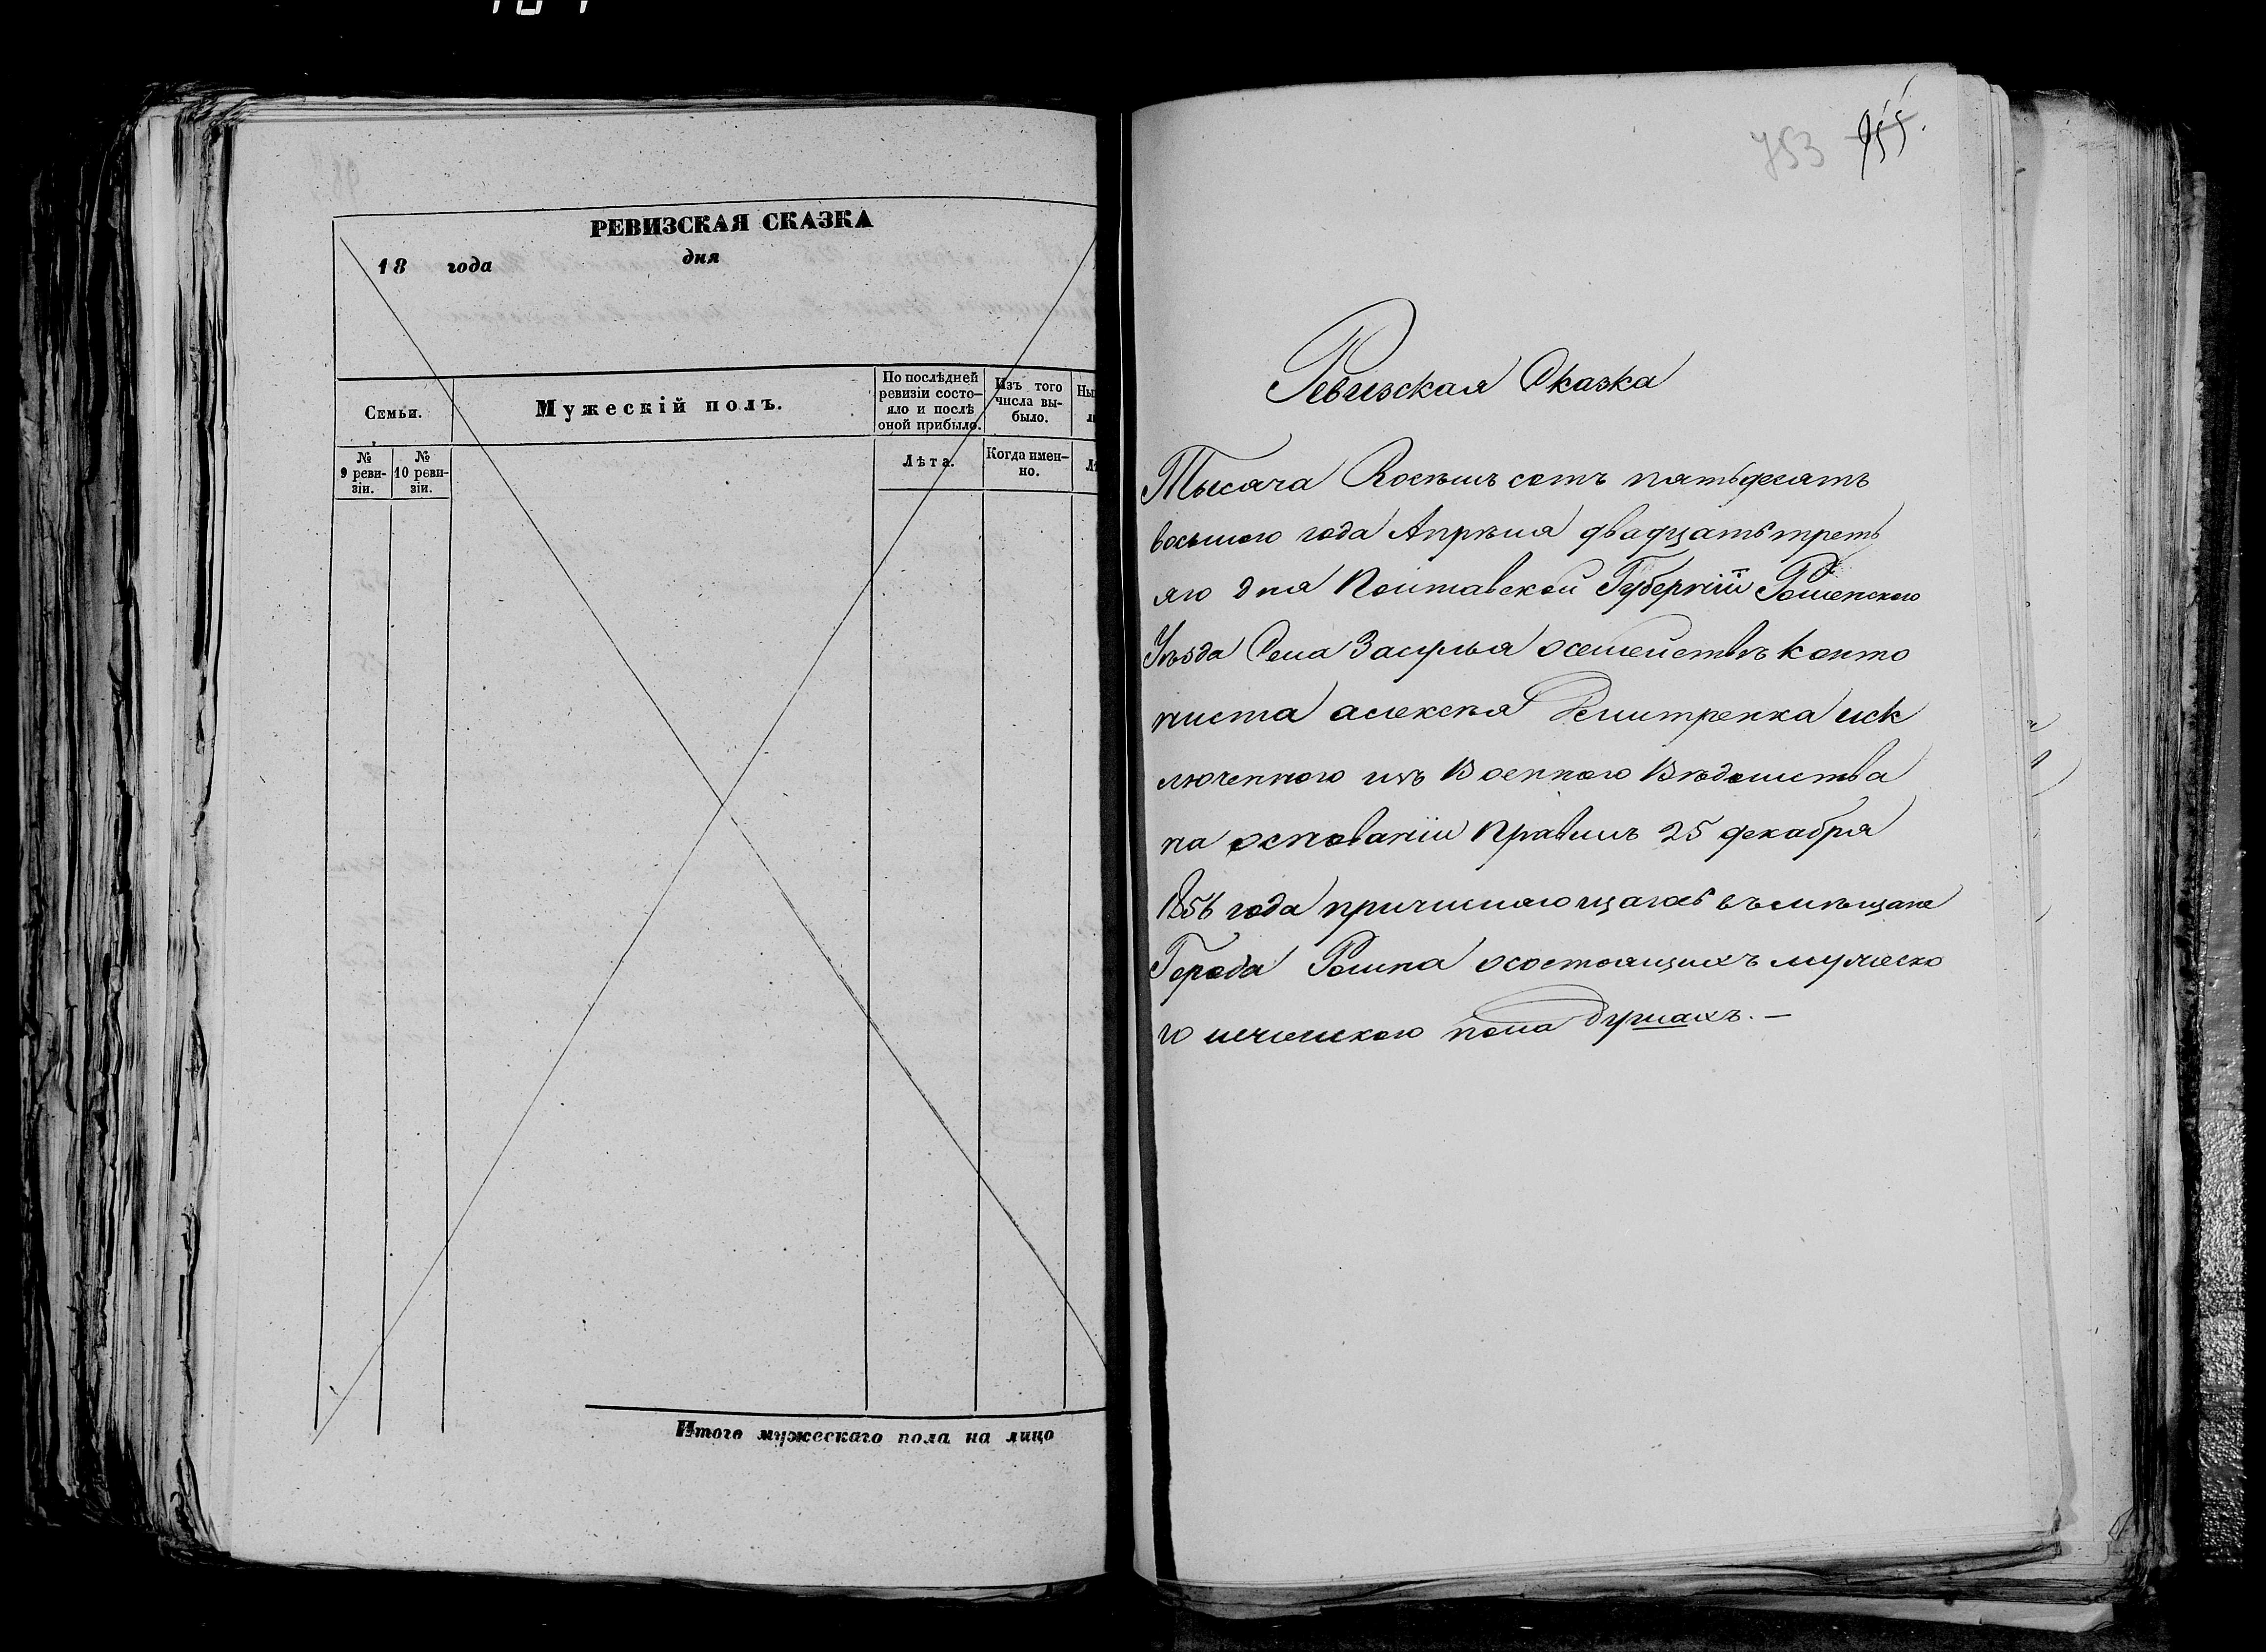 РЕВИЗСКАЯ СКАЗКА
18 года дня
Семьи.
Мужескій полъ.
По послѣдней
ревизіи состо-
яло и послѣ
оной прибыло.
Изъ того
числа вы-
было.
Ны
№
9 реви-
зіи.
№
10 реви-
зіи.
Лѣта.
Когда имен-
но.
Лѣ
Итого мужескаго пола на лицо
753 955.
Ревизская Сказка
Тысяча Восѣмь сотъ пятьдесятъ
восьмого года Апрѣля двадцать треть
яго дня Полтавской Губерніи Роменского
Уѣзда Села Засулья осемействѣ канто
ниста алексѣя Дмитренка иск
люченного изъ Военного Вѣдомства
на основаніи Правилъ 25 декабря
1856 года причисляющагось въ мѣщане
Города Ромна осостоящихъ мужеско
го иженского пола душахъ. —